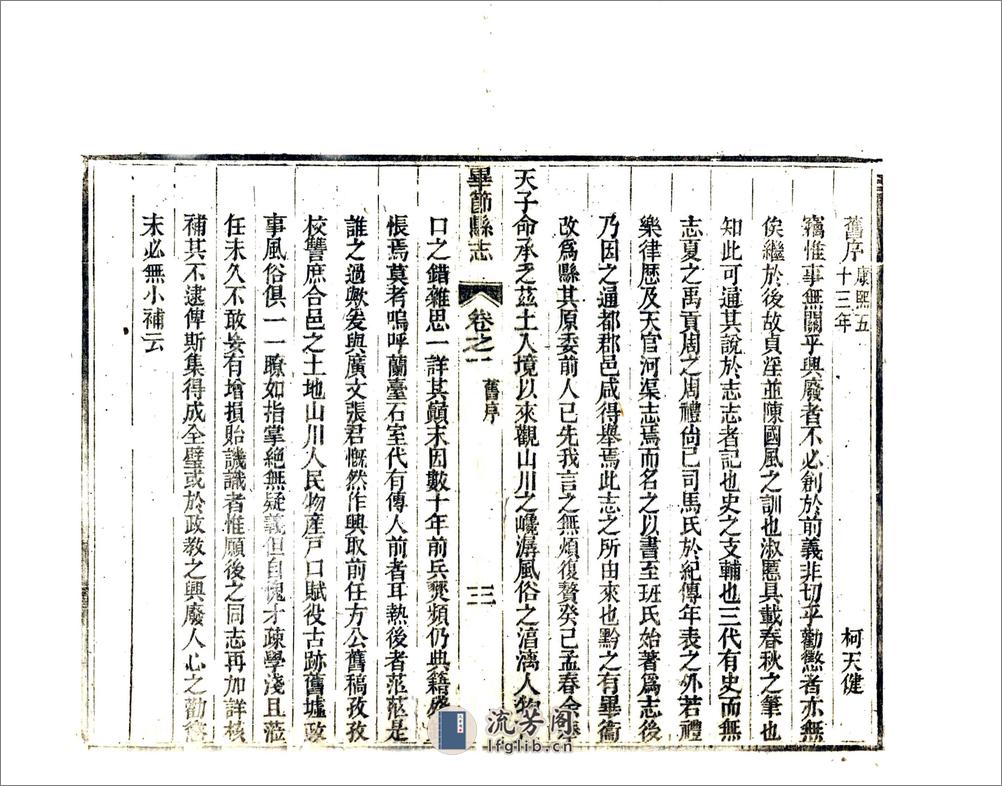 舊序 康熙五十三年 柯天健
竊惟事無關乎興廢者不必創於前義非切乎勸懲者亦無
俟繼於後故貞淫並陳國風之訓也淑慝具載春秋之筆也
知此可通其說於志志者記也史之支輔也三代有史而無
志夏之禹貢周之周禮尙已司馬氏於紀傳年表之外若禮
樂律歷及天官河渠志焉而名之以書至班氏始著爲志後
乃因之通都郡邑咸得舉焉此志之所由來也黔之有畢衞
改爲縣其原委前人已先我言之無煩復贅癸巳孟春余奉
天子命承乏茲土入境以來觀山川之巉潺風俗之湻漓人物
畢節縣志 卷之一 舊序 三
口之錯雜思一詳其巔末因數十年前兵燹頻仍典籍
悵焉莫考嗚呼蘭臺石室代有傳人前者耳熱後者茫茫是
誰之過歟爰與廣文張君慨然作興取前任方公舊稿孜孜
校讐庶合邑之土地山川人民物産戸口賦役古跡舊墟政
事風俗俱一一瞭如指掌絕無疑義但自愧才疎學淺且蒞
任未久不敢妄有增損貽譏識者惟願後之同志再加詳核
補其不逮俾斯集得成全璧或於政教之興廢人心之勸懲
未必無小補云
流芳阁
lfglib.cn